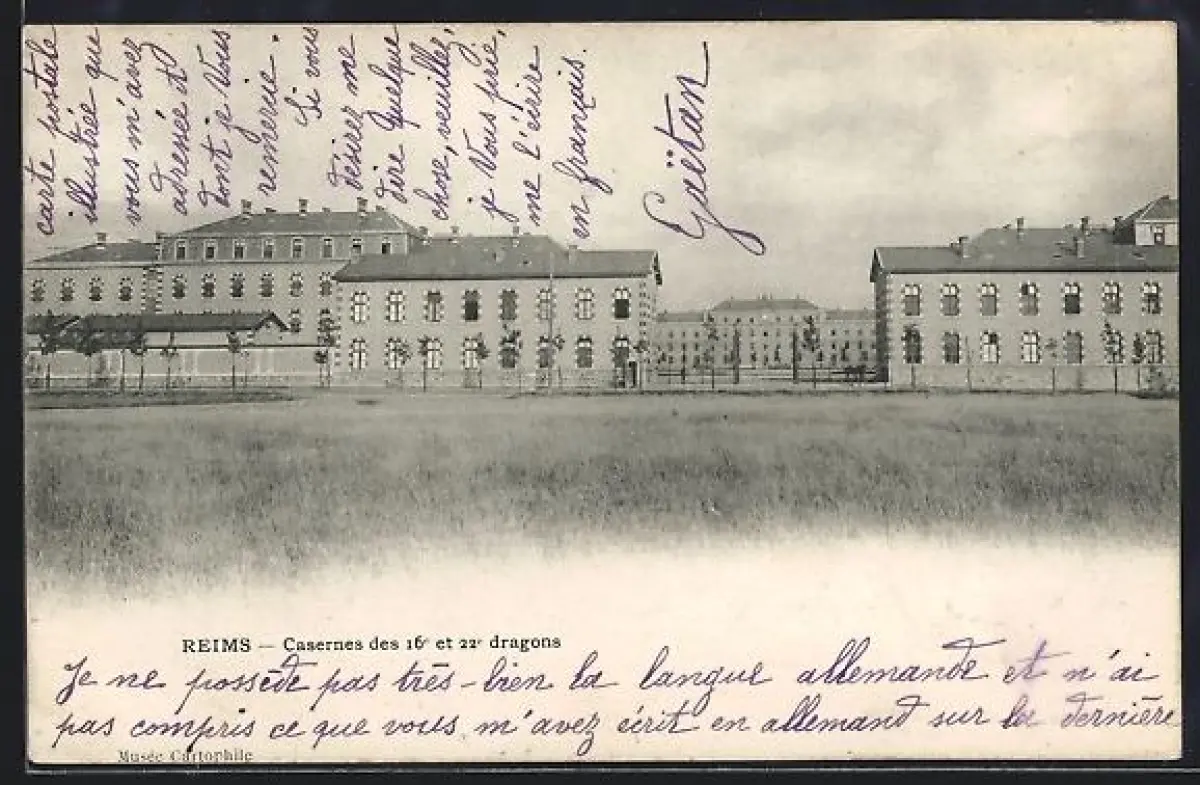 REIMS — Casernes des 16e et 22e dragons
Je ne possède pas très-bien la langue allemande et n'ai
pas compris ce que vous m'avez écrit en allemand sur la dernière
Musée Cartophile
carte postale
illustrée que
vous m'avez
adressée et
dont je Vous
remercie.
Si vous
désirez me
dire quelque
chose, veuillez,
je Vous prie,
me l'écrire
en français.
Gaëtan